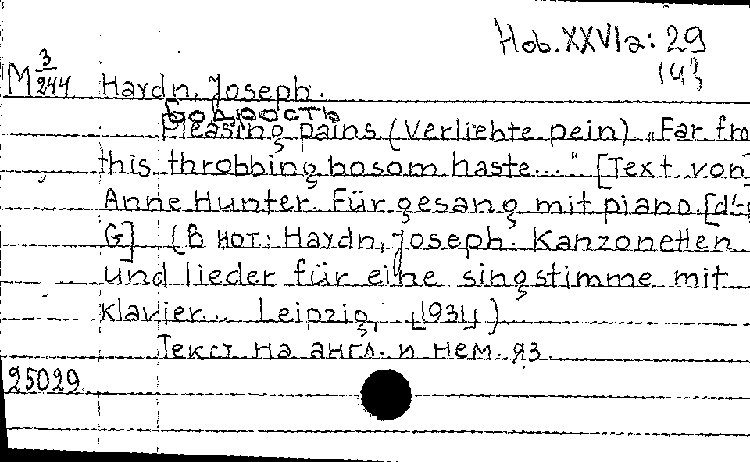 Hob. XXVIa: 29
M 3/244 Haydn, Joseph.
Бодрость
Pleasing pains (Verliebte pein) „Far fro
this throbbing bosom haste..." [Text von
Anne Hunter. Für gesang mit piano.
G] (В нот: Haydn, Joseph. Kanzonetten
und lieder für eine singstimme mit
klavier... Leipzig, [1931])
Текст на англ. и нем. яз.
25029